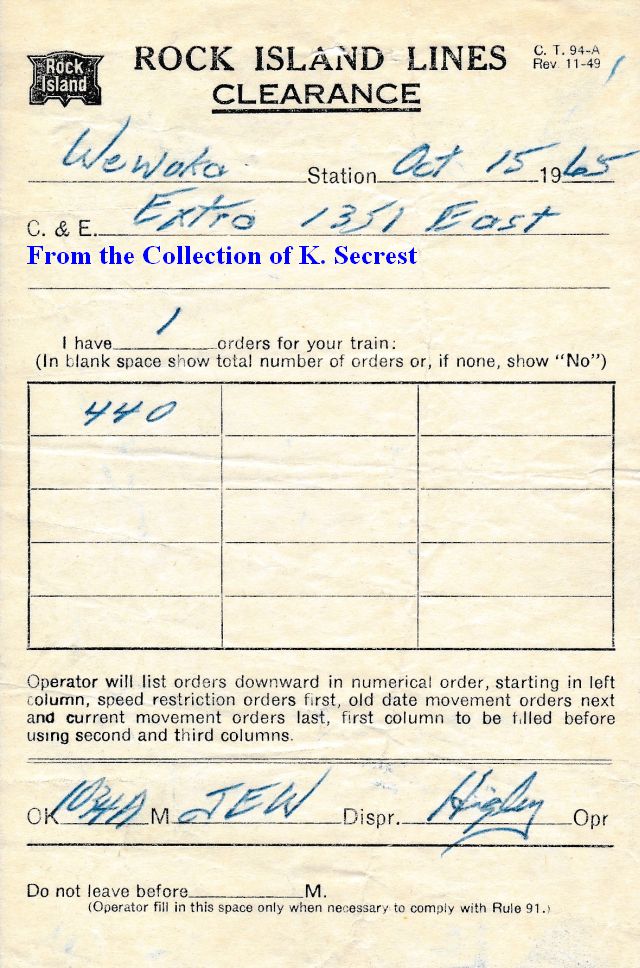 Rock Island
ROCK ISLAND LINES
C. T. 94-A
Rev. 11-49
1
CLEARANCE
Wewoka Station Oct 15 1965
C. & E. Extra 1351 East
From the Collection of K. Secrest
I have 1 orders for your train:
(In blank space show total number of orders or, if none, show "No")
440
Operator will list orders downward in numerical order, starting in left
column, speed restriction orders first, old date movement orders next
and current movement orders last, first column to be filled before
using second and third columns.
OK 1034A M JEW Dispr. Higley Opr
Do not leave before M.
(Operator fill in this space only when necessary to comply with Rule 91.)